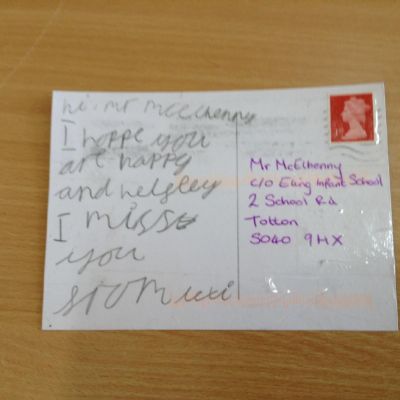 hi. mr mcclhenny
I hoppe you
are happy
and helgley
I miss
you
srom lexi
Mr McElhenny
c/o Eling Infant School
2 School Rd
Totton
SO40 9HX